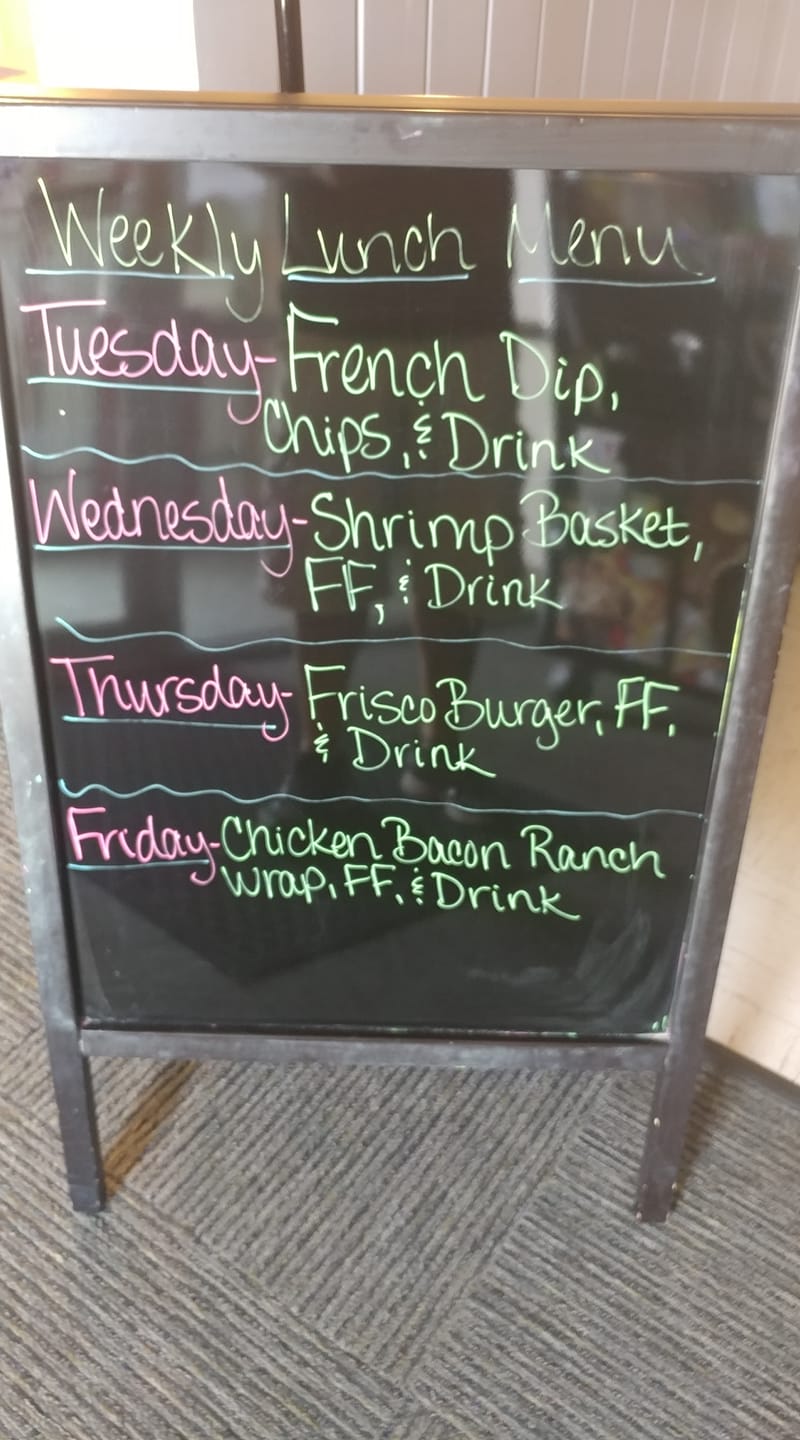 Weekly Lunch Menu
Tuesday- French Dip,
Chips, & Drink
Wednesday- Shrimp Basket,
FF, & Drink
Thursday- Frisco Burger, FF,
& Drink
Friday- Chicken Bacon Ranch
Wrap, FF, & Drink